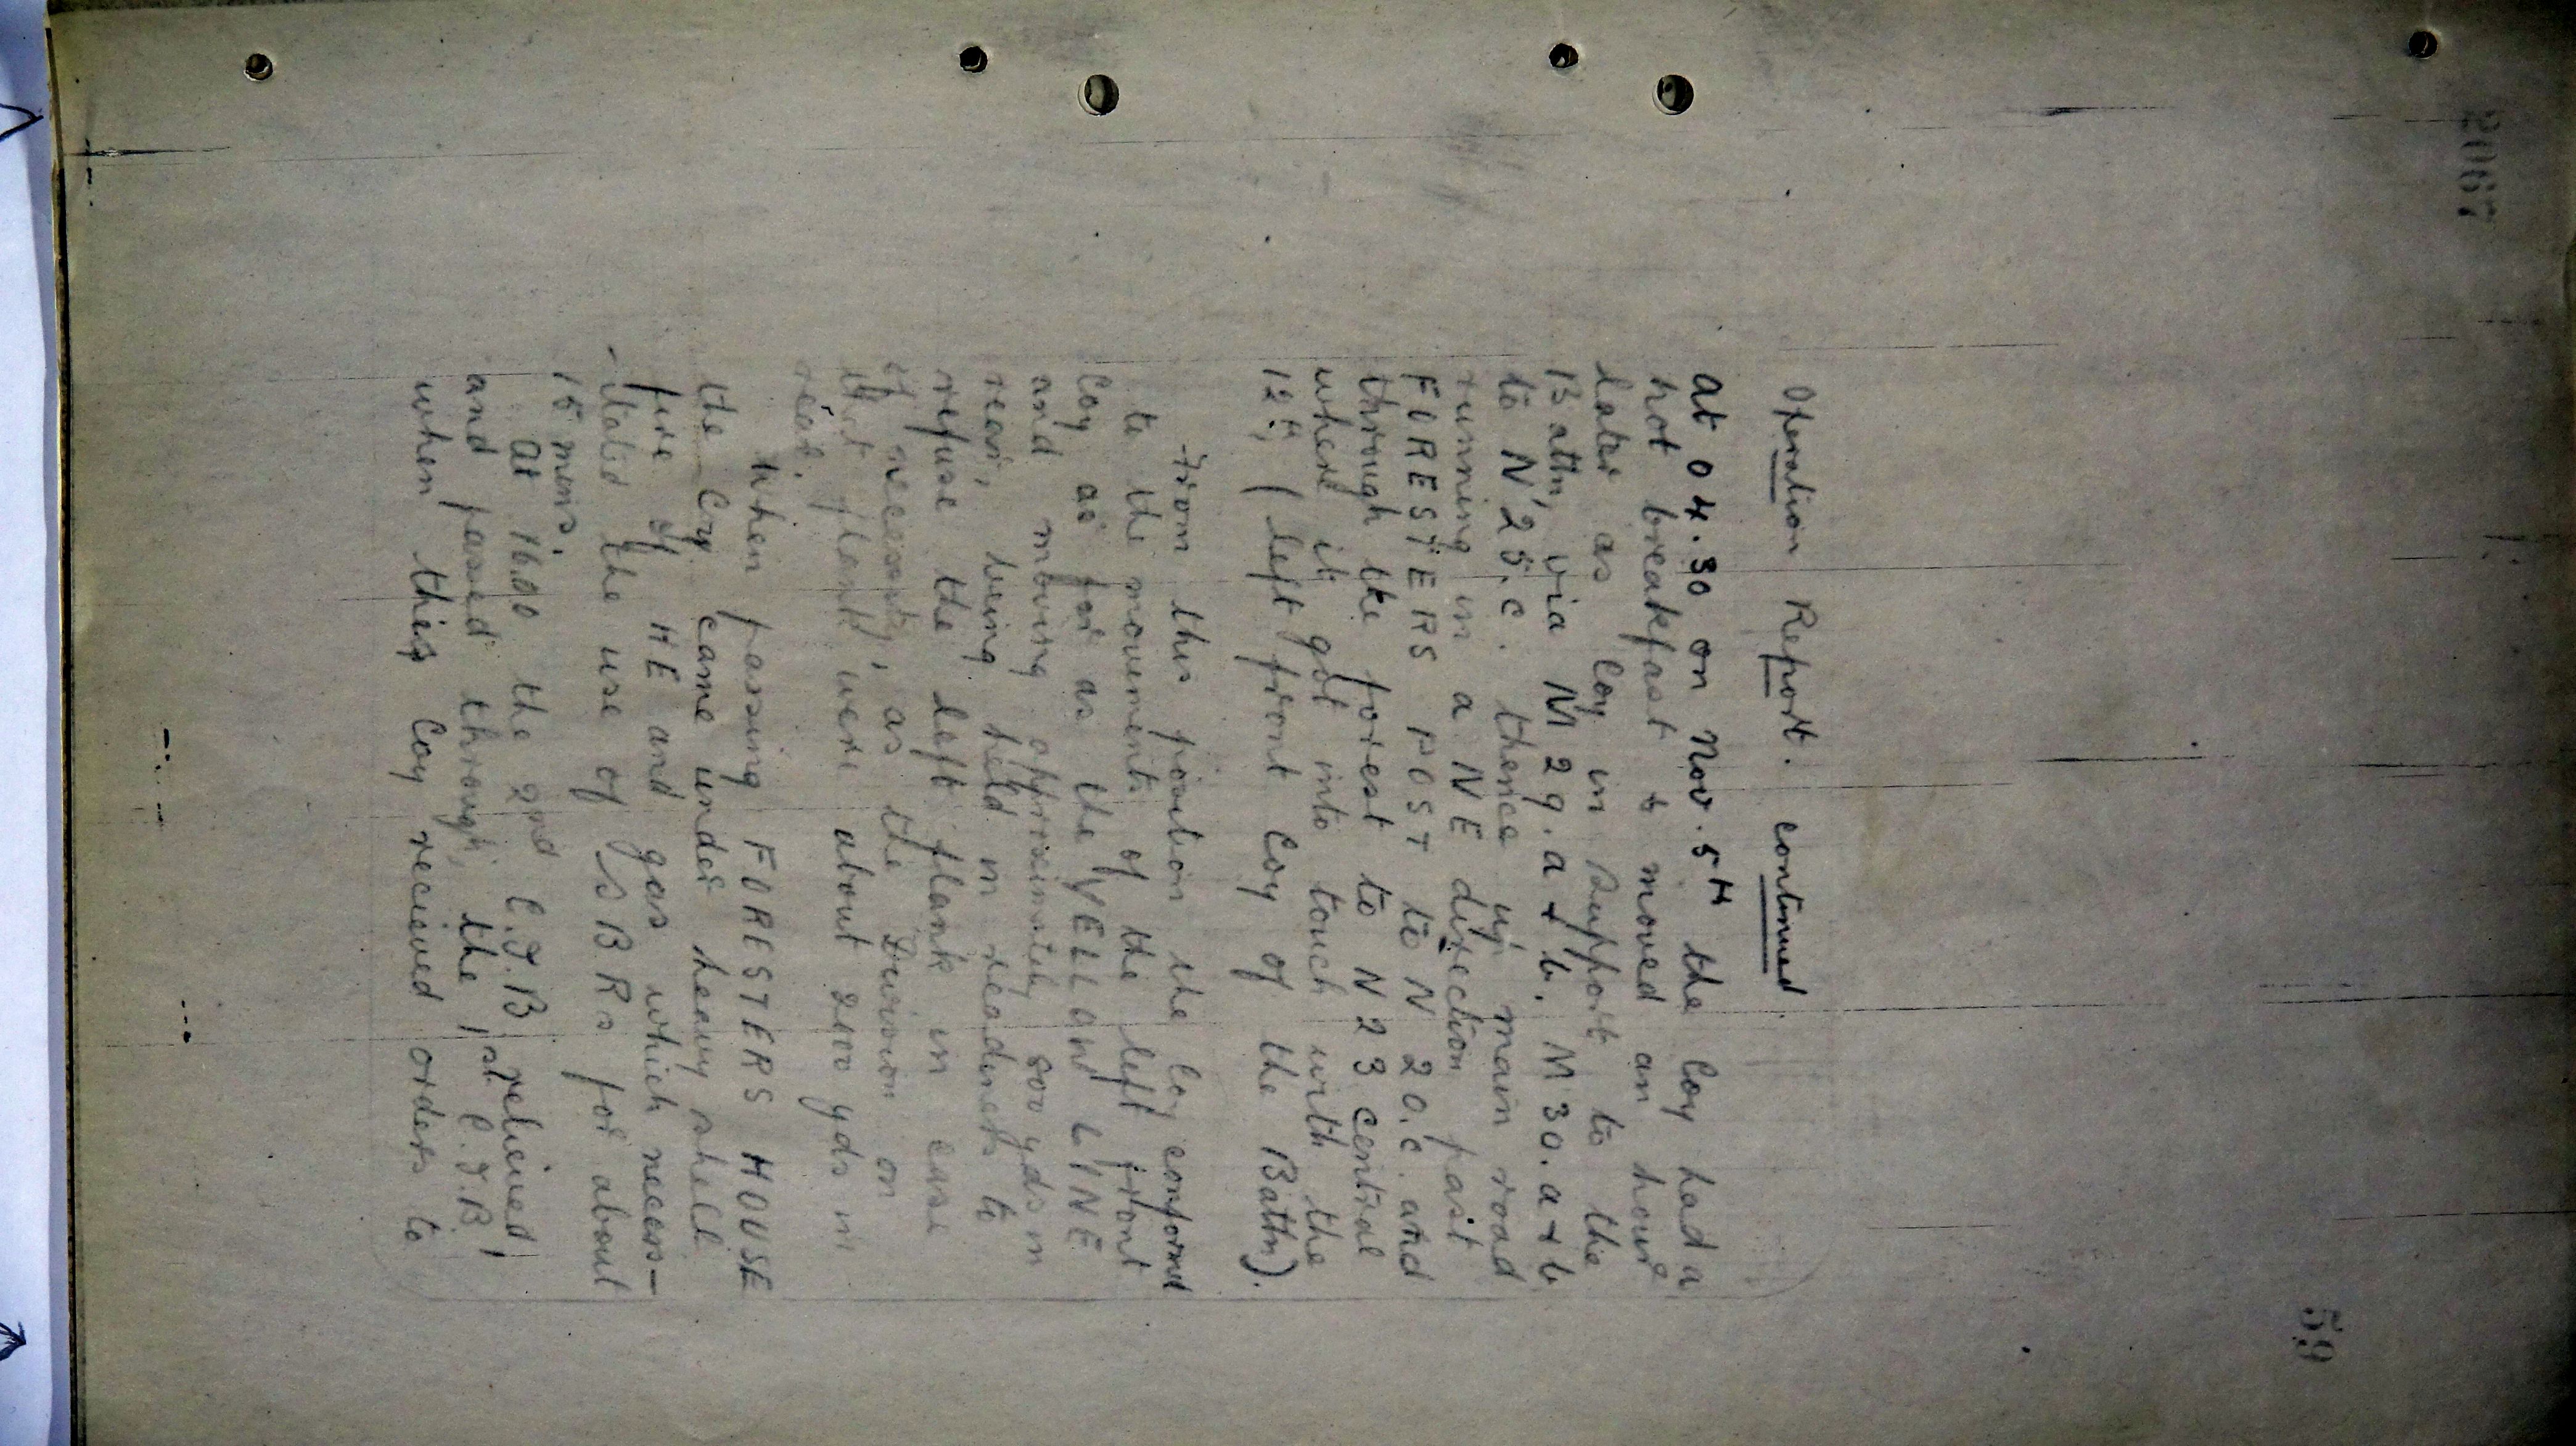 2067
59
Operation Report. continued.
at 04.30 on Nov. 5th the Coy had a
hot breakfast & moved an hour
later as Coy in Support to the
Battn, via M 29. a & b. M 30. a & b
to N 25. c. thence up main road
running in a NE direction past
FORESTERS POST to N 20. c. and
through the forest to N 23 central
where it got into touch with the
12th, (left front Coy of the Battn).
From this position the Coy conformed
to the movements of the left front
Coy as far as the YELLOW LINE
and moving approximately 500 yds in
rear, being held in readiness to
refuse the left flank in case
of necessity, as the Division on
that flank were about 2000 yds in
rear.
When passing FORESTERS HOUSE
the Coy came under heavy shell
fire of HE and gas which necess-
-itated the use of SBRs for about
15 mins.
At 16.00 the 2nd C.I.B relieved,
and passed through, the 1st C.I.B,
when this Coy recieved orders to